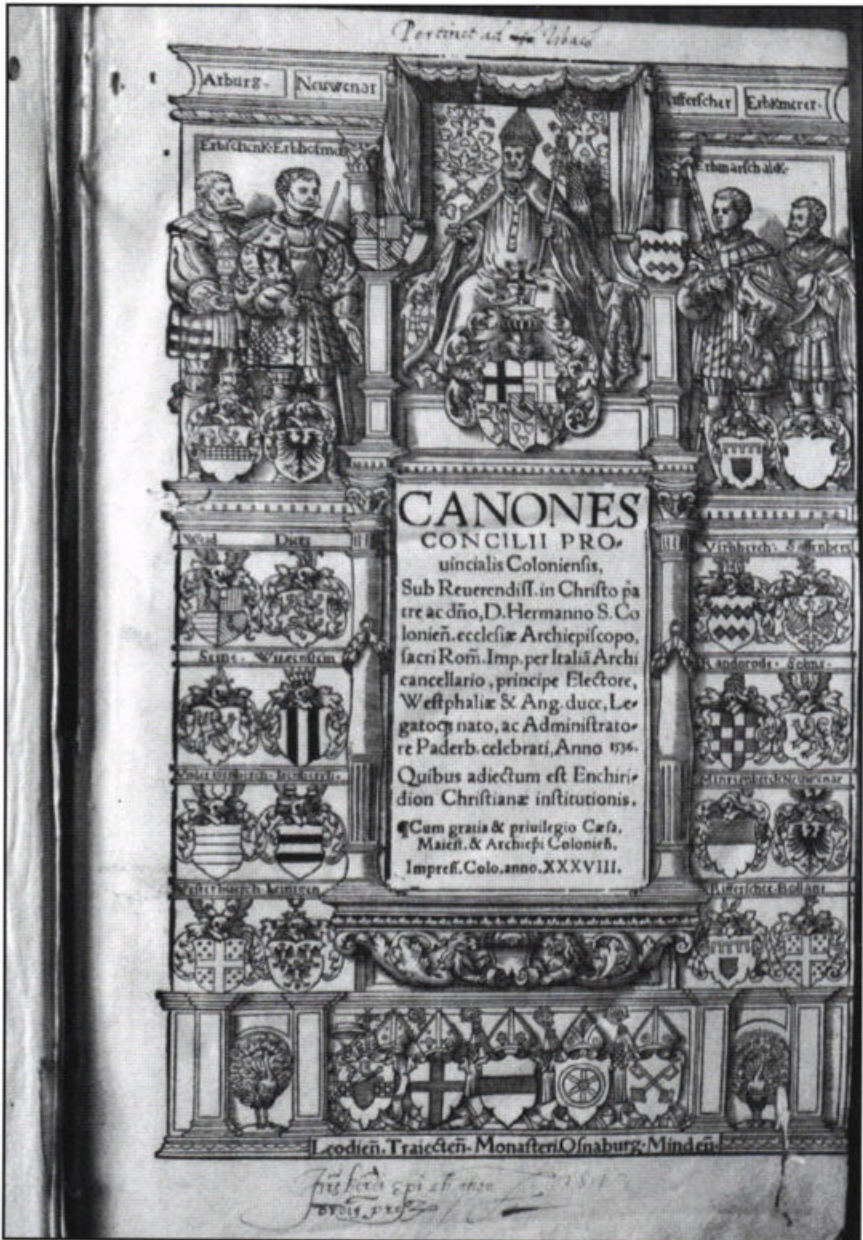 Pertinet ad
Arburg. Neuwenar
Riffersche͏r Erbkmerer.
Erbschenk. Erbhofmei
Erbmarschalk.
CANONES
CONCILII PRO-
uincialis Coloniensis,
Sub Reuerendiss. in Christo pa
tre ac dño, D. Hermanno S. Co
lonieñ. ecclesiæ Archiepiscopo,
sacri Rom̃. Imp. per Italiã Archi
cancellario, principe Electore,
Westphaliæ & Ang. duce, Le-
gatoq́ꝫ nato, ac Administrato-
re Paderb. celebrati, Anno 1536.
Quibus adiectum est Enchiri-
dion Christianæ institutionis.
¶Cum gratia & priuilegio Cæsa.
Maiest. & Archiep̃i Colonieñ.
Impress. Colo. anno. XXXVIII.
Wid Dietz
Seine. Witgenstein
Westerbuerch Leiningen
Virnberch. Saffenberg
Randerode. Sohns.
Neuwenar
Rifferscher. Bollant
Leodieñ. Traiecteñ. Monasteri. Osnaburg. Mindeñ.